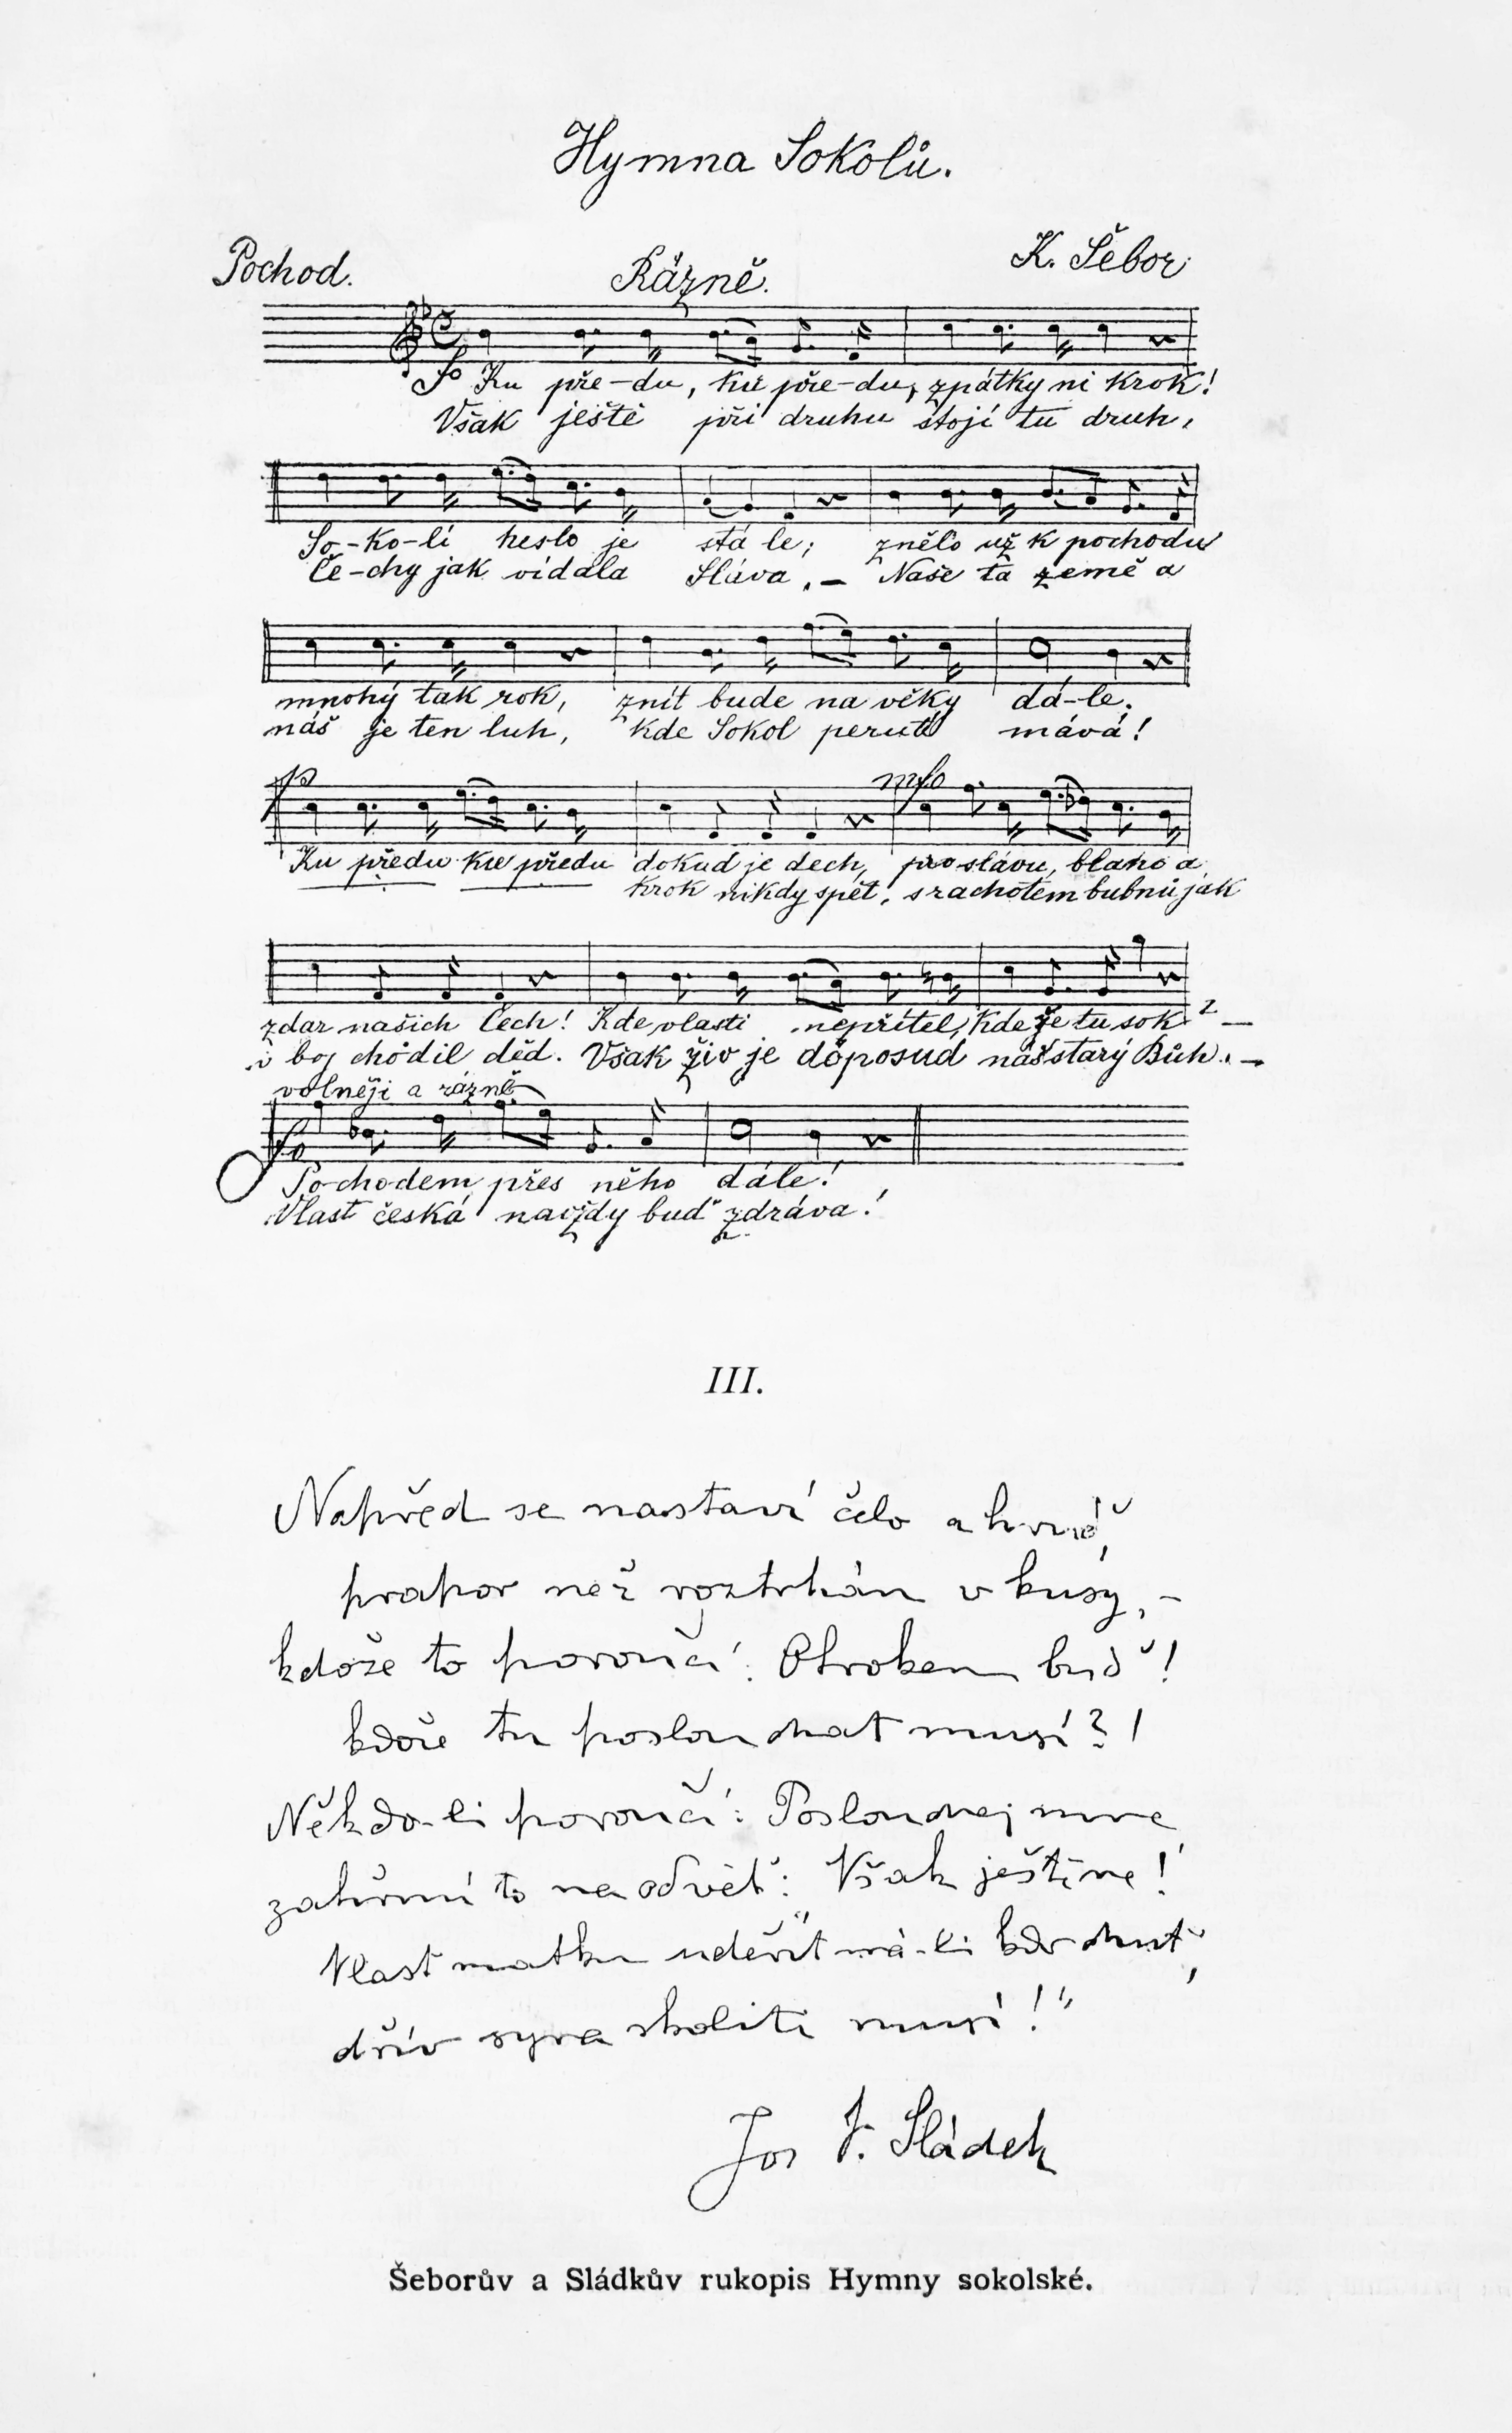 Hymna Sokolů.
Pochod. Rázně. K. Šebor
Ku pře-du, ku pře-du, zpátky ni krok!
Však ještě při druhu stojí tu druh,
So-ko-lí heslo je stá le; znělo už k pochodu
Če-chy jak vídala Sláva. – Naše ta země a
mnohý tak rok, znít bude na věky dá-le.
náš je ten luh, kde Sokol perutě mává!
p mfo
Ku předu ku předu dokud je dech, pro slávu, blaho a
krok nikdy spět, s rachotem bubnů jak
zdar našich Čech! Kde vlasti nepřítel, kde že tu sok? –
v boj chodil děd. Však živ je doposud náš starý Bůh. –
volněji a rázně
Pochodem přes něho dále!
Vlast česká navždy buď zdráva!
III.
Napřed se nastaví čelo a hruď,
prapor než roztrhán v kusy, –
kdože to poroučí: Otrokem buď!
kdože tu poslouchat musí?!
Někdo-li poroučí: Poslouchej mne
zahřmí to na odvět: Však ještě ne!
Vlast matku udeřit má-li kdo chuť,
dřív syna skoliti musí!"
Jos V. Sládek
Šeborův a Sládkův rukopis Hymny sokolské.